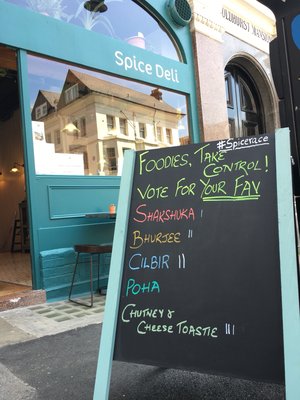 OLDHURST MANSIONS
Spice Deli
#Spicerace
FOODIES, TAKE
CONTROL!
VOTE FOR YOUR FAV
SHAKSHUKA I
BHURJEE II
CILBIR II
POHA
CHUTNEY &
CHEESE TOASTIE III